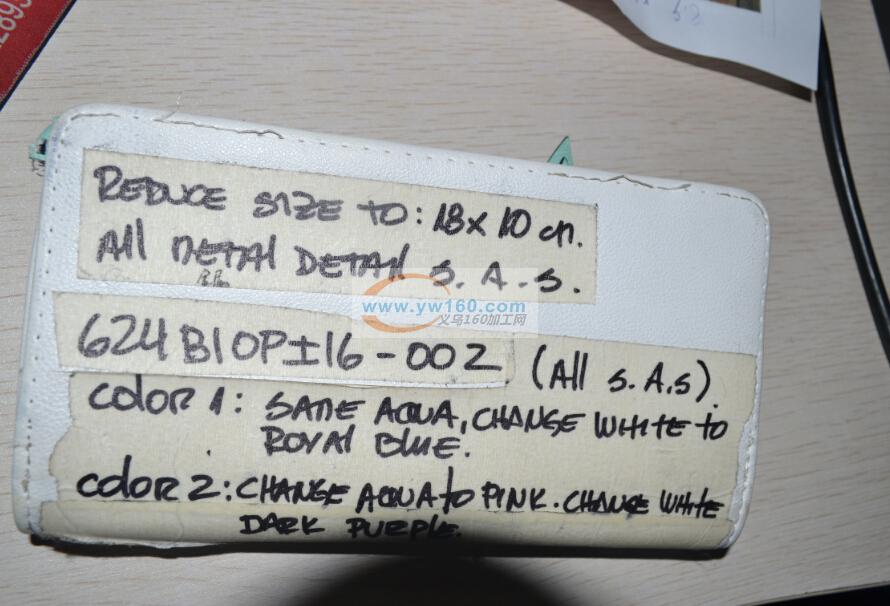 REDUCE SIZE TO: 18x10 cm.
All METAL DETAIL S.A.S.
www.yw160.com
义乌160加工网
624B10P±16-002 (All S.A.S).
color 1: SAME AQUA, CHANGE WHITE to
ROYAL BLUE.
color 2: CHANGE AQUA to PINK. CHANGE WHITE
DARK PURPLE.